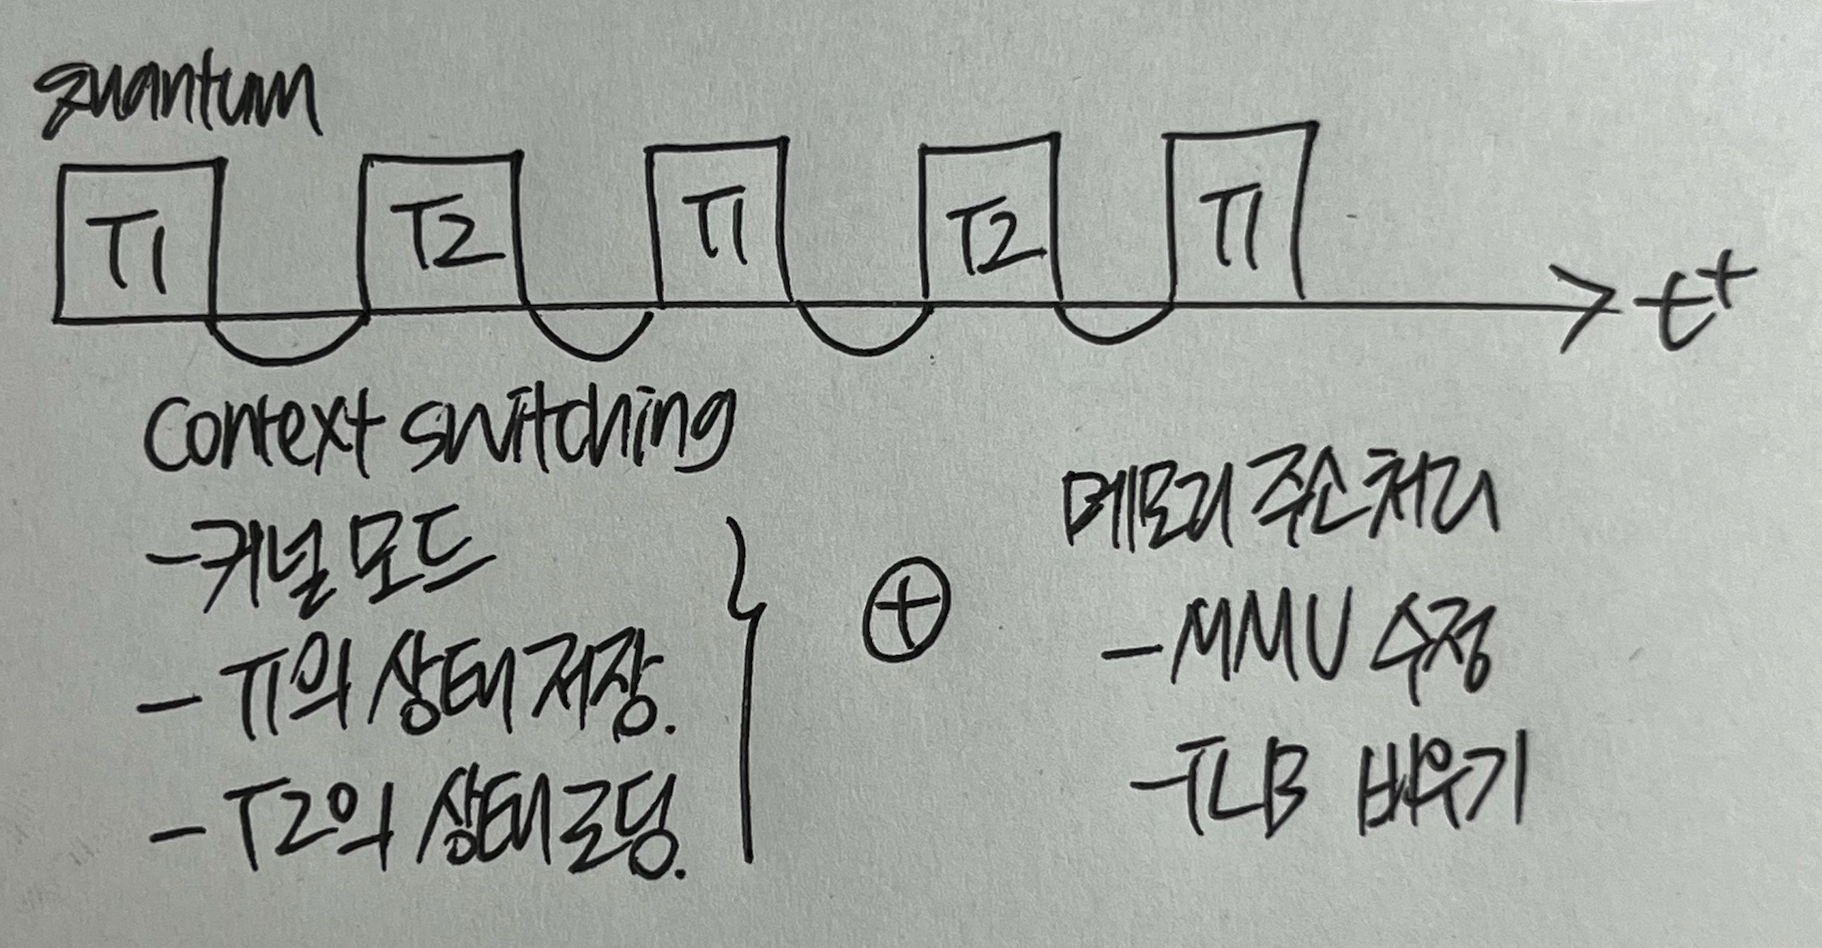 quantum
T1 T2 T1 T2 T1
t+
Context switching
-커널 모드
- T1의 상태 저장.
- T2의 상태 로딩.
+
메모리 주소 처리
-MMU 수정
-TLB 비우기